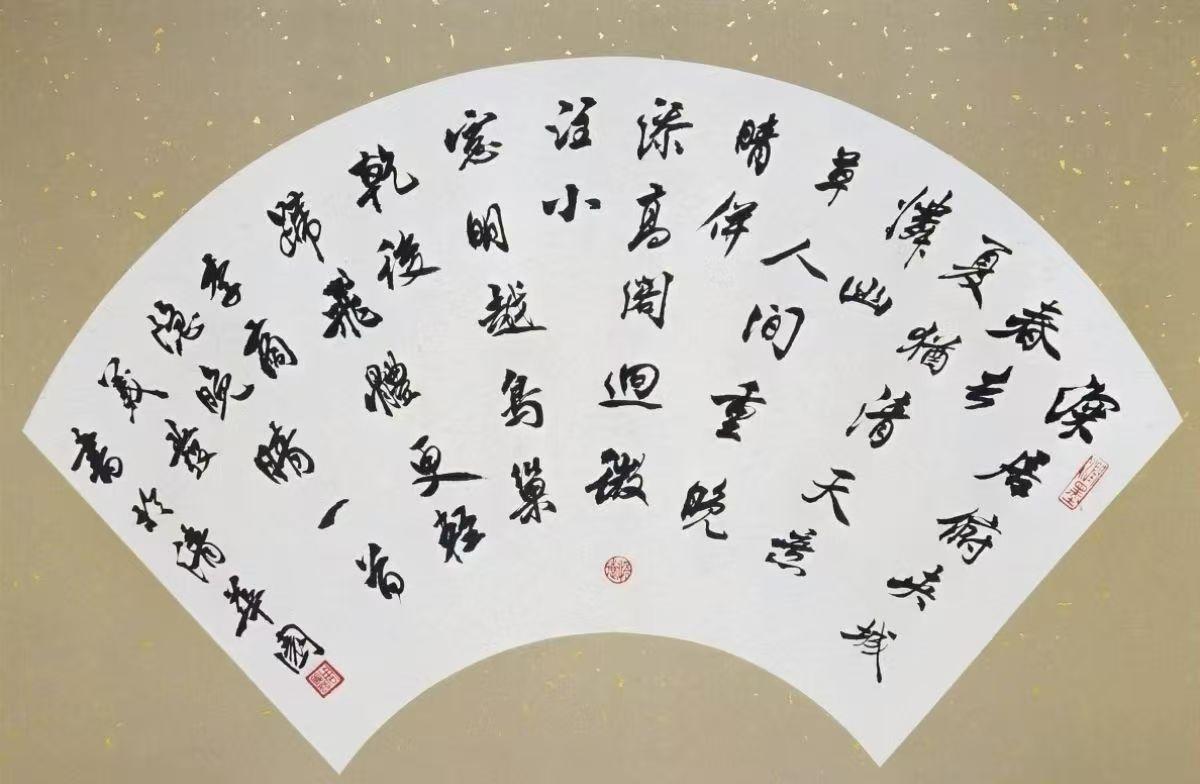 深居俯夾城
春去
夏猶清天意
憐幽
草人間重晚
晴併
添高閣迥微
注小
窓明越鳥巢
乾後
歸飛體更輕
李商
隱晚晴一首
義發
書於清華園